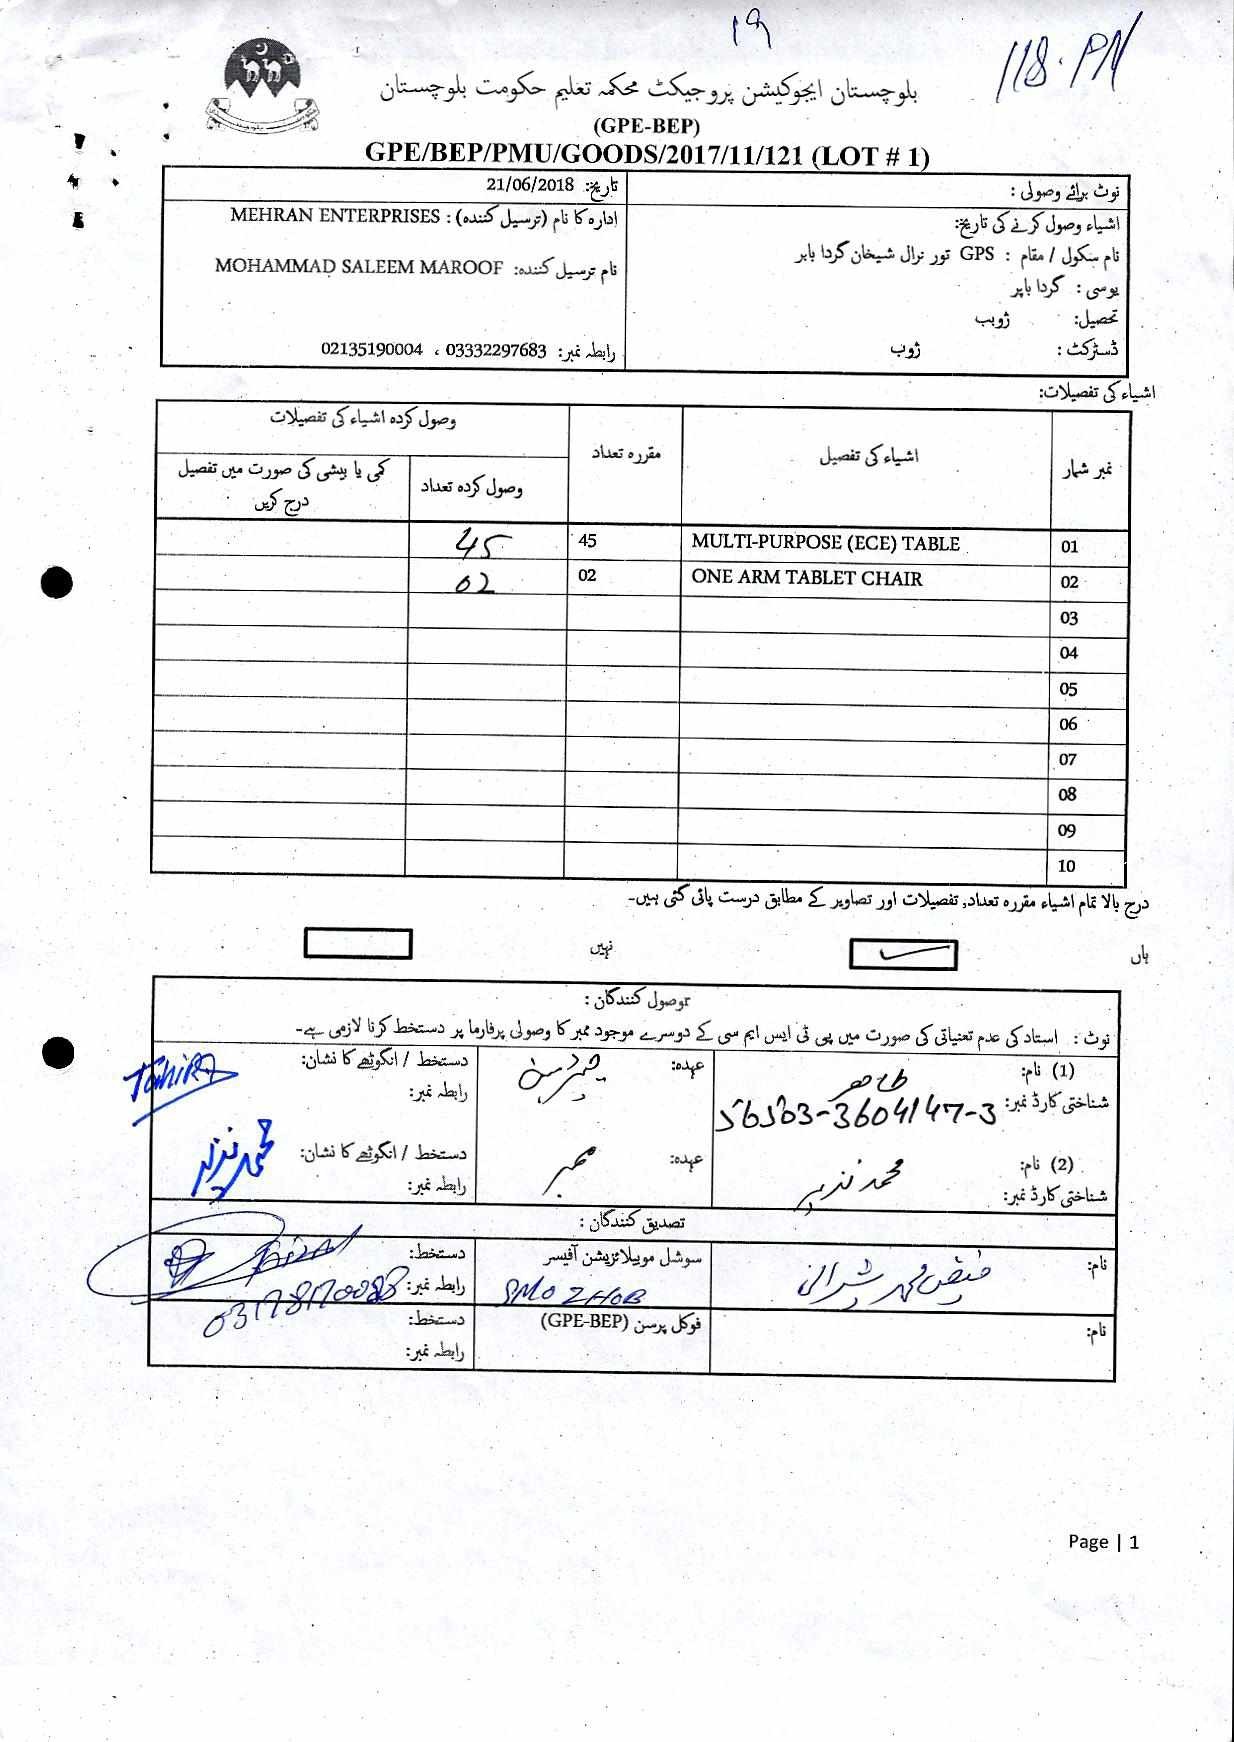 19
118. PN
بلوچستان ایجوکیشن پروجیکٹ محکمہ تعلیم حکومت بلوچستان
(GPE-BEP)
GPE/BEP/PMU/GOODS/2017/11/121 (LOT # 1)
نوٹ برائے وصولی :
تاریخ: 21/06/2018
اشیاء وصول کرنے کی تاریخ:
ادارہ کا نام (ترسیل کنندہ) : MEHRAN ENTERPRISES
نام سکول / مقام : GPS تور نرال شیخان گردا بابر
نام ترسیل کنندہ: MOHAMMAD SALEEM MAROOF
یوسی : گردا باپر
تحصیل: ژوب
ڈسٹرکٹ : ژوب
رابطہ نمبر: 03332297683 ، 02135190004
اشیاء کی تفصیلات:
نمبر شمار اشیاء کی تفصیل مقررہ تعداد وصول کردہ اشیاء کی تفصیلات
وصول کردہ تعداد کمی یا بیشی کی صورت میں تفصیل درج کریں
01 MULTI-PURPOSE (ECE) TABLE 45 45
02 ONE ARM TABLET CHAIR 02 02
03
04
05
06
07
08
09
10
درج بالا تمام اشیاء مقررہ تعداد, تفصیلات اور تصاویر کے مطابق درست پائی گئی ہیں۔
ہاں ✓ نہیں
وصول کنندگان :
نوٹ : استاد کی عدم تعنیاتی کی صورت میں پی ٹی ایس ایم سی کے دوسرے موجود ممبر کا وصولی پرفارما پر دستخط کرنا لازمی ہے۔
(1) نام: طاہر عہدہ: چیئرمین دستخط / انگوٹھے کا نشان: Tahir
شناختی کارڈ نمبر: 56303-3604147-3 رابطہ نمبر:
(2) نام: محمد نذیر عہدہ: ممبر دستخط / انگوٹھے کا نشان: محمد نذیر
شناختی کارڈ نمبر: رابطہ نمبر:
تصدیق کنندگان :
نام: فیض محمد شیرانی سوشل موبیلائزیشن آفیسر دستخط:
SMO ZHOB رابطہ نمبر: 03178170088
نام: فوکل پرسن (GPE-BEP) دستخط:
رابطہ نمبر:
Page | 1